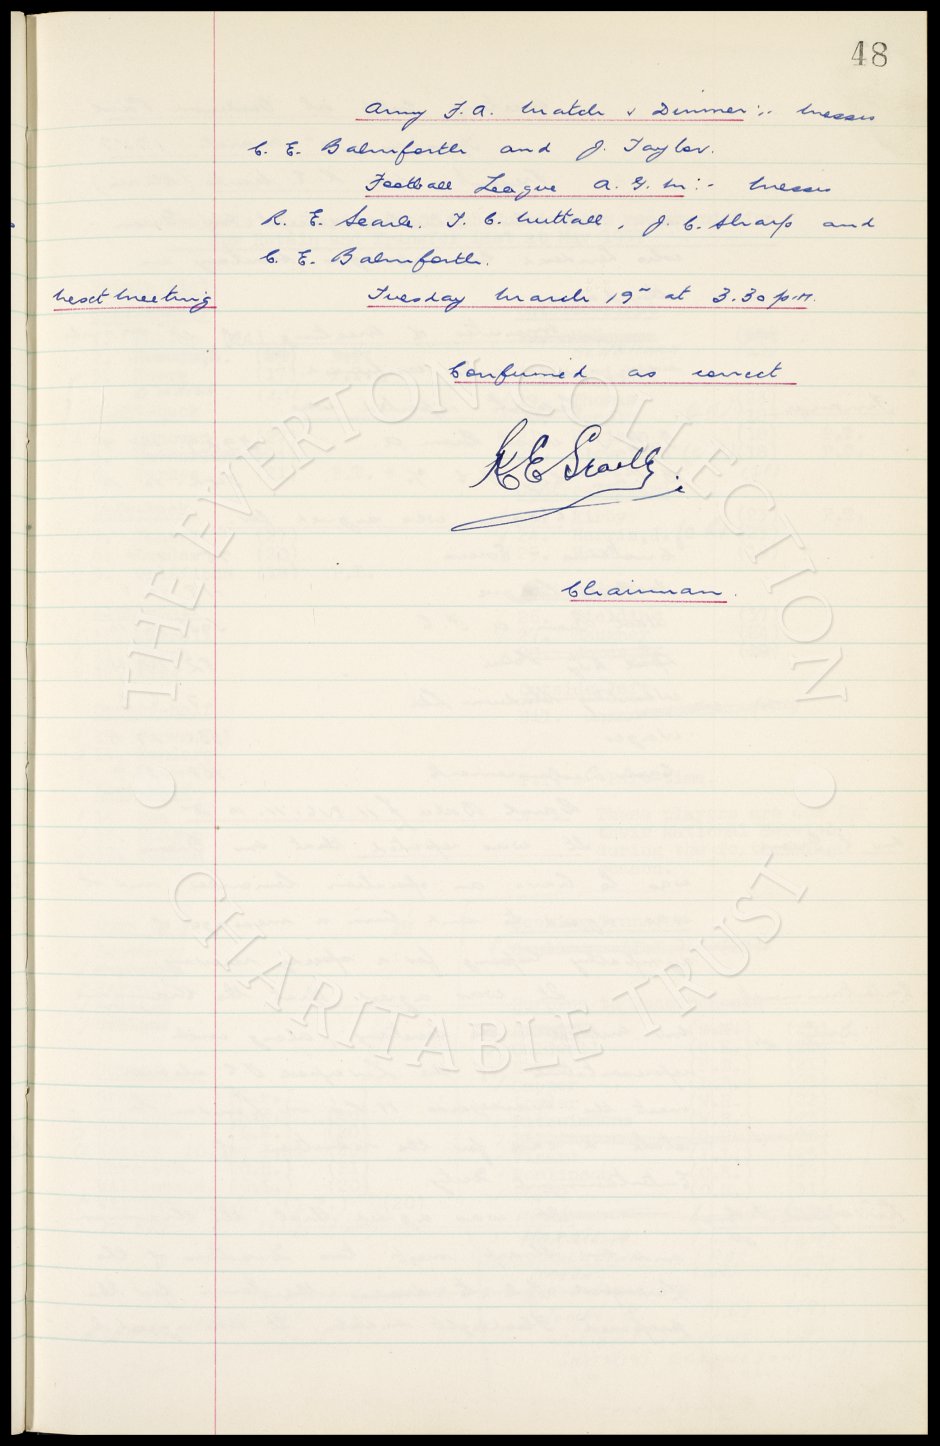 48
Army F.A. Match & Dinner:- Messrs
C. E. Balmforth and J. Taylor.
Football League A.G.M:- Messrs
R. E. Searle. T. C. Nuttall, J. C. Sharp and
C. E. Balmforth.
Next Meeting Tuesday March 19th at 3.30 p.m.
Confirmed as correct
R E Searle
Chairman.
THE EVERTON COLLECTION
CHARITABLE TRUST